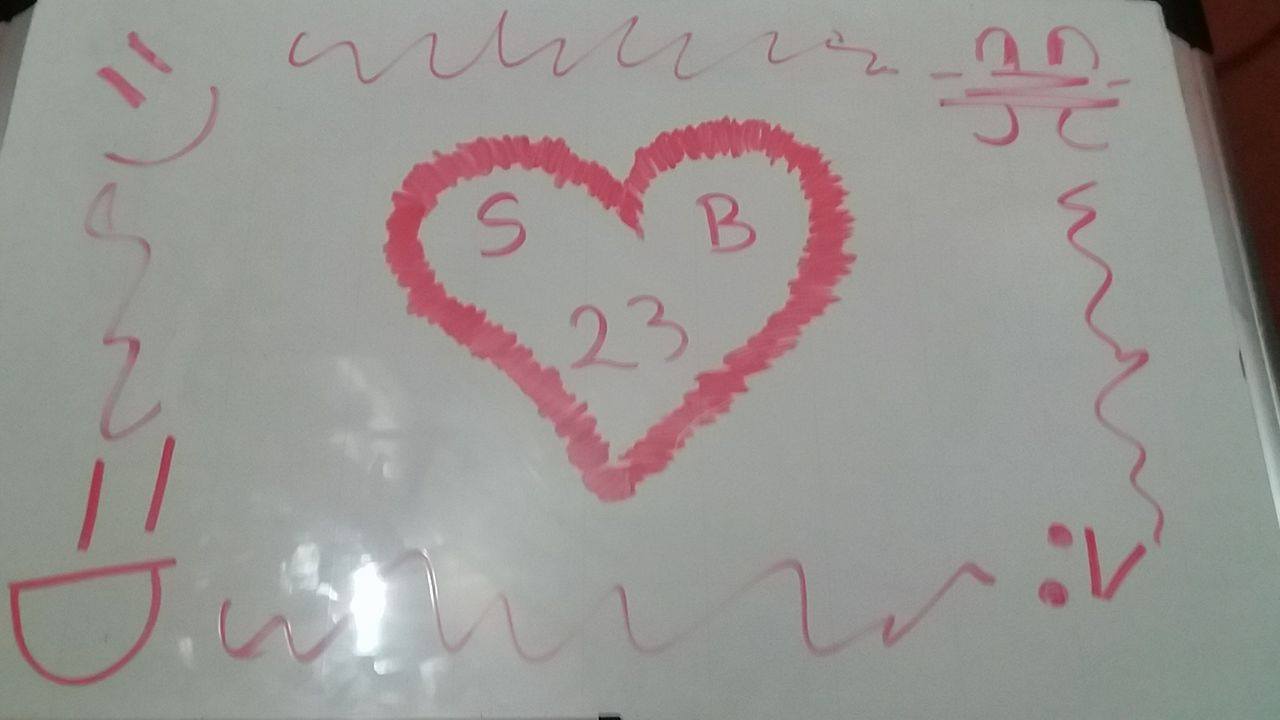 S B
23
:V